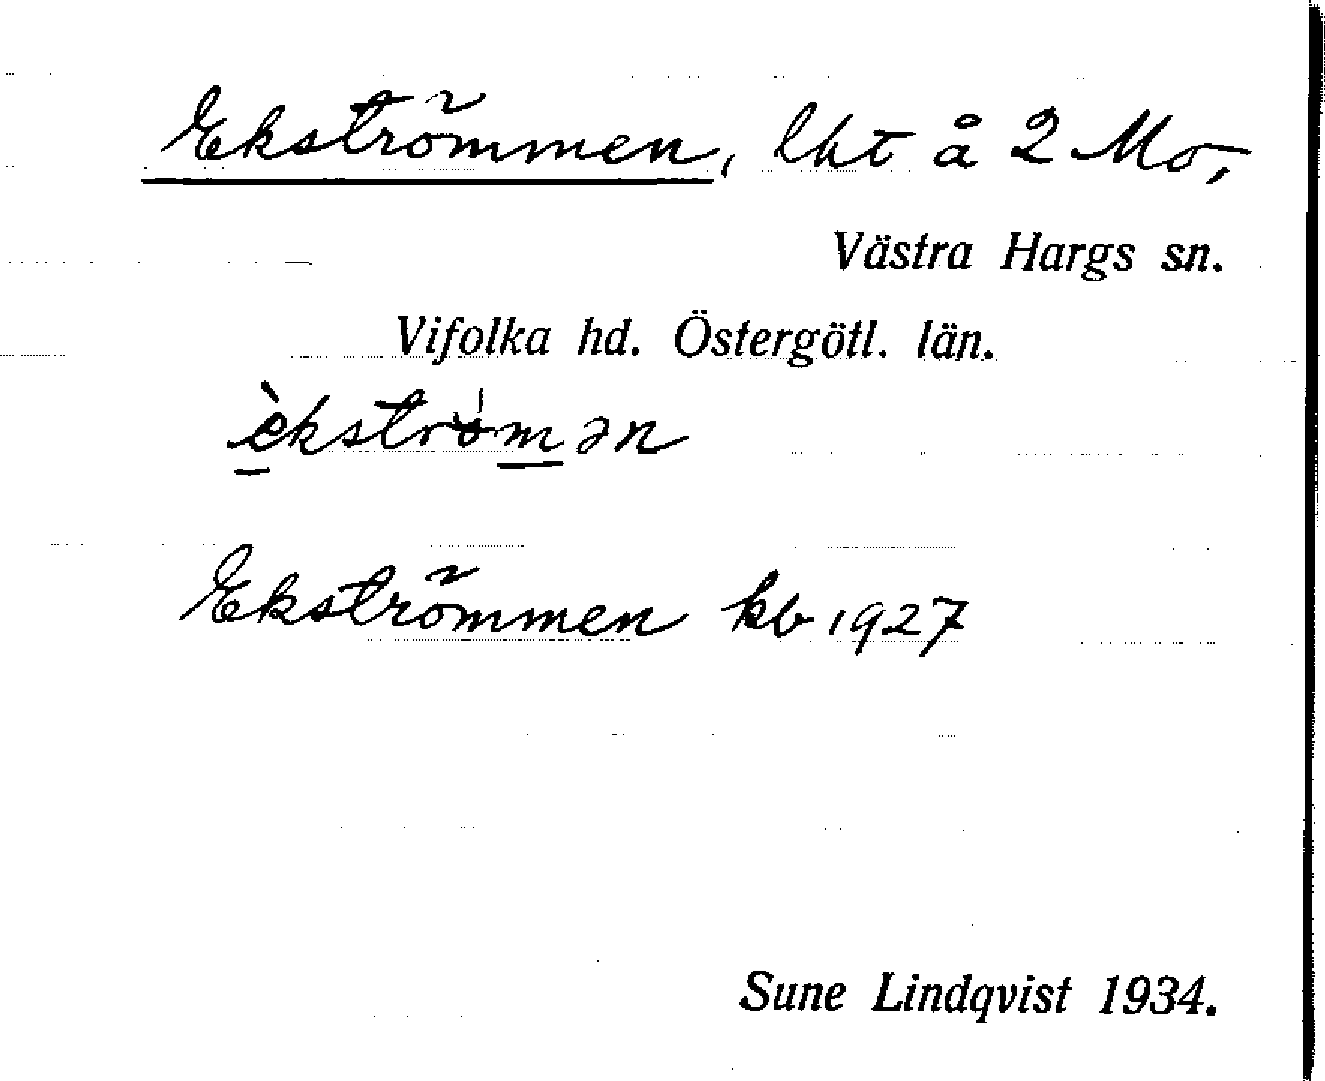 Ekströmmen, lht å 2 Mo,
Västra Hargs sn.
Vifolka hd. Östergötl. län.
èkströmən
Ekströmmen kb 1927
Sune Lindqvist 1934.